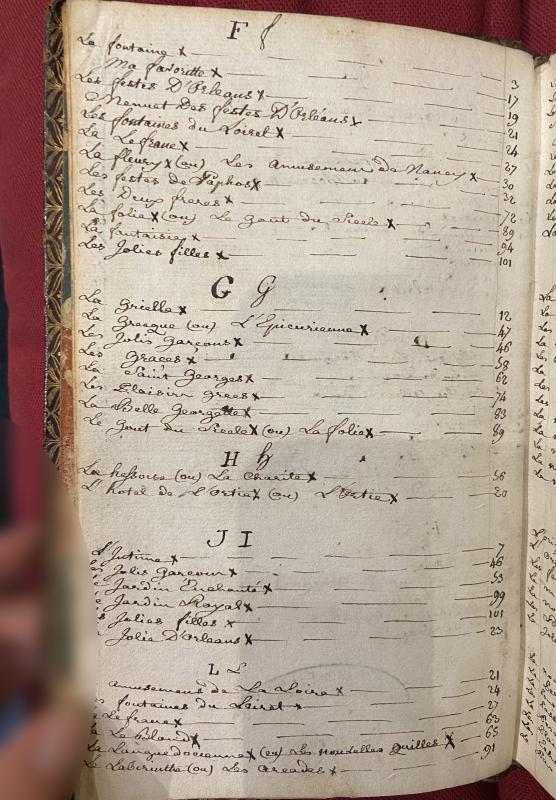 F f
La fontaine x 3
Ma favoritte x 17
Les festes D'Orleans x 19
Menuet Des festes D'Orléans x 21
Les fontaines du Loiret x 24
La Lefranc x 27
La fleury x (ou) Les amusemens de Nancy x 30
Les festes de Paphos x 32
Les Deux freres x 72
La folie x (ou) Le gout du Siecle x 89
La fantaisie x 94
Les Jolies filles x 101
G G
La Grielle x 12
La Greque (ou) L'Epicurienne x 47
Les Jolis garçons x 46
Les Graces x 58
La Saint Georges x 62
Les Plaisirs grecs x 74
La Belle Georgette x 83
Le gout du Siecle x (ou) La folie x 89
H h
La hessoise (ou) La Charité x 56
L'hotel de L'Ortie x (ou) L'Ortie x 20
J I
L'Intime x 7
Jolis Garcons x 46
Jardin Enchanté x 53
Jardin Royal x 99
Jolies filles x 101
Jolie D'orleans x 23
L L
amusemens de La Loire x 21
fontaines du Loiret x 24
Lefranc x 27
Le Bland x 63
La Languedocienne x (ou) Les Nouvelles quilles x 65
Le Labirinthe (ou) Les Arcades x 91